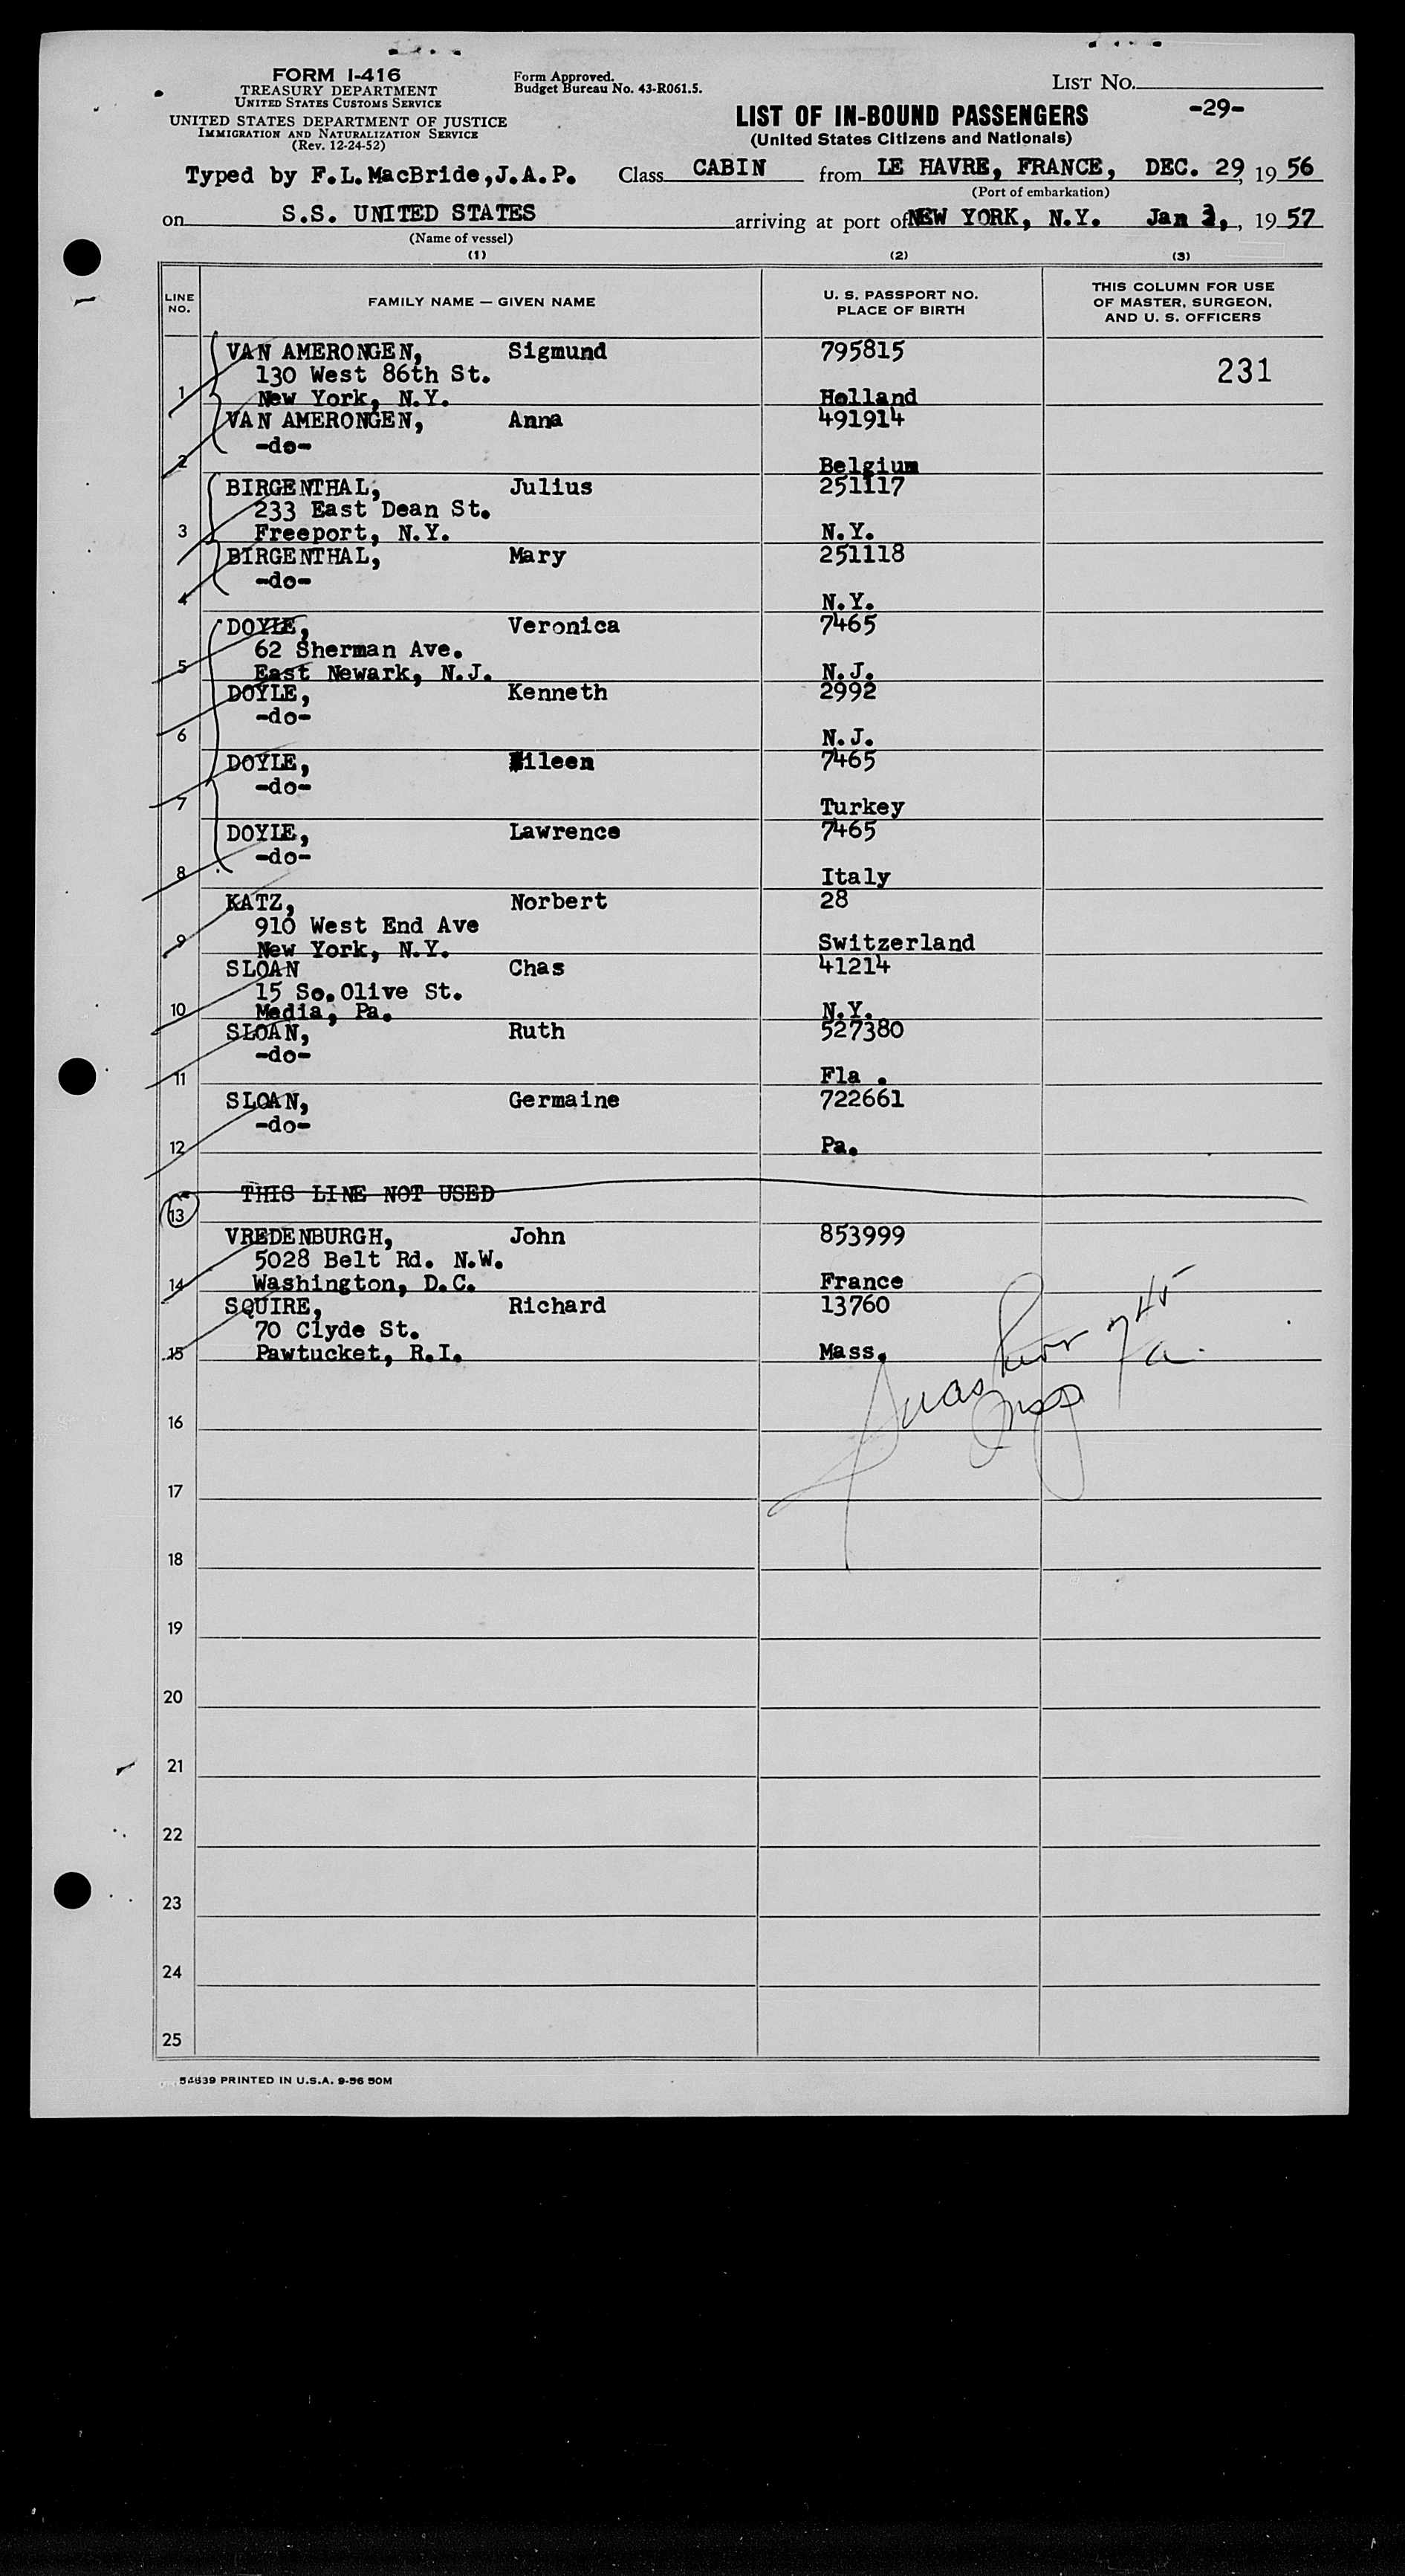 FORM I-416
TREASURY DEPARTMENT
UNITED STATES CUSTOMS SERVICE
UNITED STATES DEPARTMENT OF JUSTICE
IMMIGRATION AND NATURALIZATION SERVICE
(Rev. 12-24-52)
Form Approved.
Budget Bureau No. 43-R061.5.
LIST NO.
LIST OF IN-BOUND PASSENGERS
-29-
(United States Citizens and Nationals)
Typed by F.L.MacBride,J.A.P. Class CABIN from LE HAVRE, FRANCE, DEC. 29, 1956
(Port of embarkation)
on S.S. UNITED STATES arriving at port of NEW YORK, N.Y. Jan , 1957
(Name of vessel)
(1) (2) (3)
LINE NO. FAMILY NAME — GIVEN NAME U. S. PASSPORT NO. PLACE OF BIRTH THIS COLUMN FOR USE OF MASTER, SURGEON, AND U. S. OFFICERS
VAN AMERONGEN, Sigmund 795815
130 West 86th St. 231
1 New York, N.Y. Holland
VAN AMERONGEN, Anna 491914
-do-
2 Belgium
BIRGENTHAL, Julius 251117
233 East Dean St.
3 Freeport, N.Y. N.Y.
BIRGENTHAL, Mary 251118
-do-
4 N.Y.
DOYLE, Veronica 7465
62 Sherman Ave.
5 East Newark, N.J. N.J.
DOYLE, Kenneth 2992
-do-
6 N.J.
DOYLE, Eileen 7465
-do-
7 Turkey
DOYLE, Lawrence 7465
-do-
8 Italy
KATZ, Norbert 28
910 West End Ave
9 New York, N.Y. Switzerland
SLOAN Chas 41214
15 So.Olive St.
10 Media, Pa. N.Y.
SLOAN, Ruth 527380
-do-
11 Fla .
SLOAN, Germaine 722661
-do-
12 Pa.
THIS LINE NOT USED
13
VREDENBURGH, John 853999
5028 Belt Rd. N.W.
14 Washington, D.C. France
SQUIRE, Richard 13760
70 Clyde St.
15 Pawtucket, R.I. Mass.
16
17
18
19
20
21
22
23
24
25
54639 PRINTED IN U.S.A. 9-56 50M